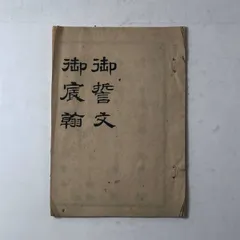 御誓文
御宸翰